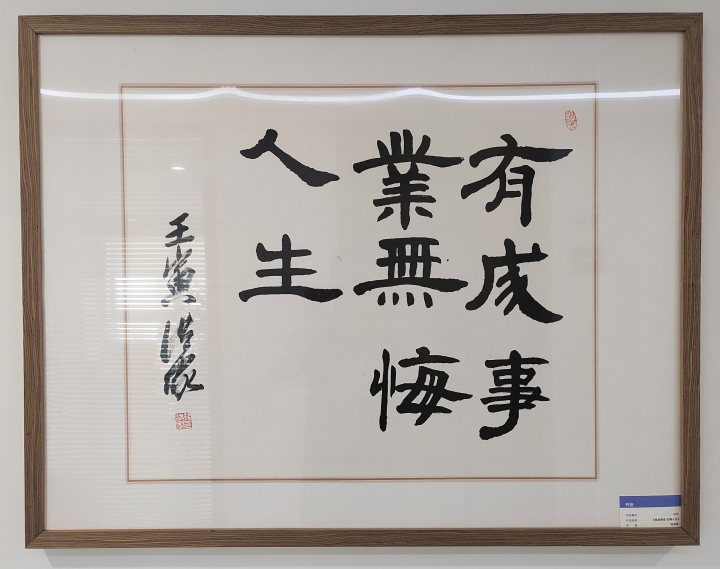 有成事
業無悔
人生
壬寅 洪家